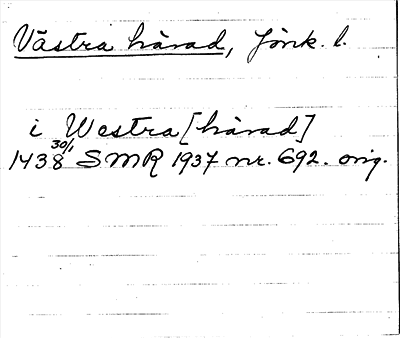 Västra härad, Jönk. l.
i Westra [härad]
1438 30/1 SMR 1937 nr. 692. orig.